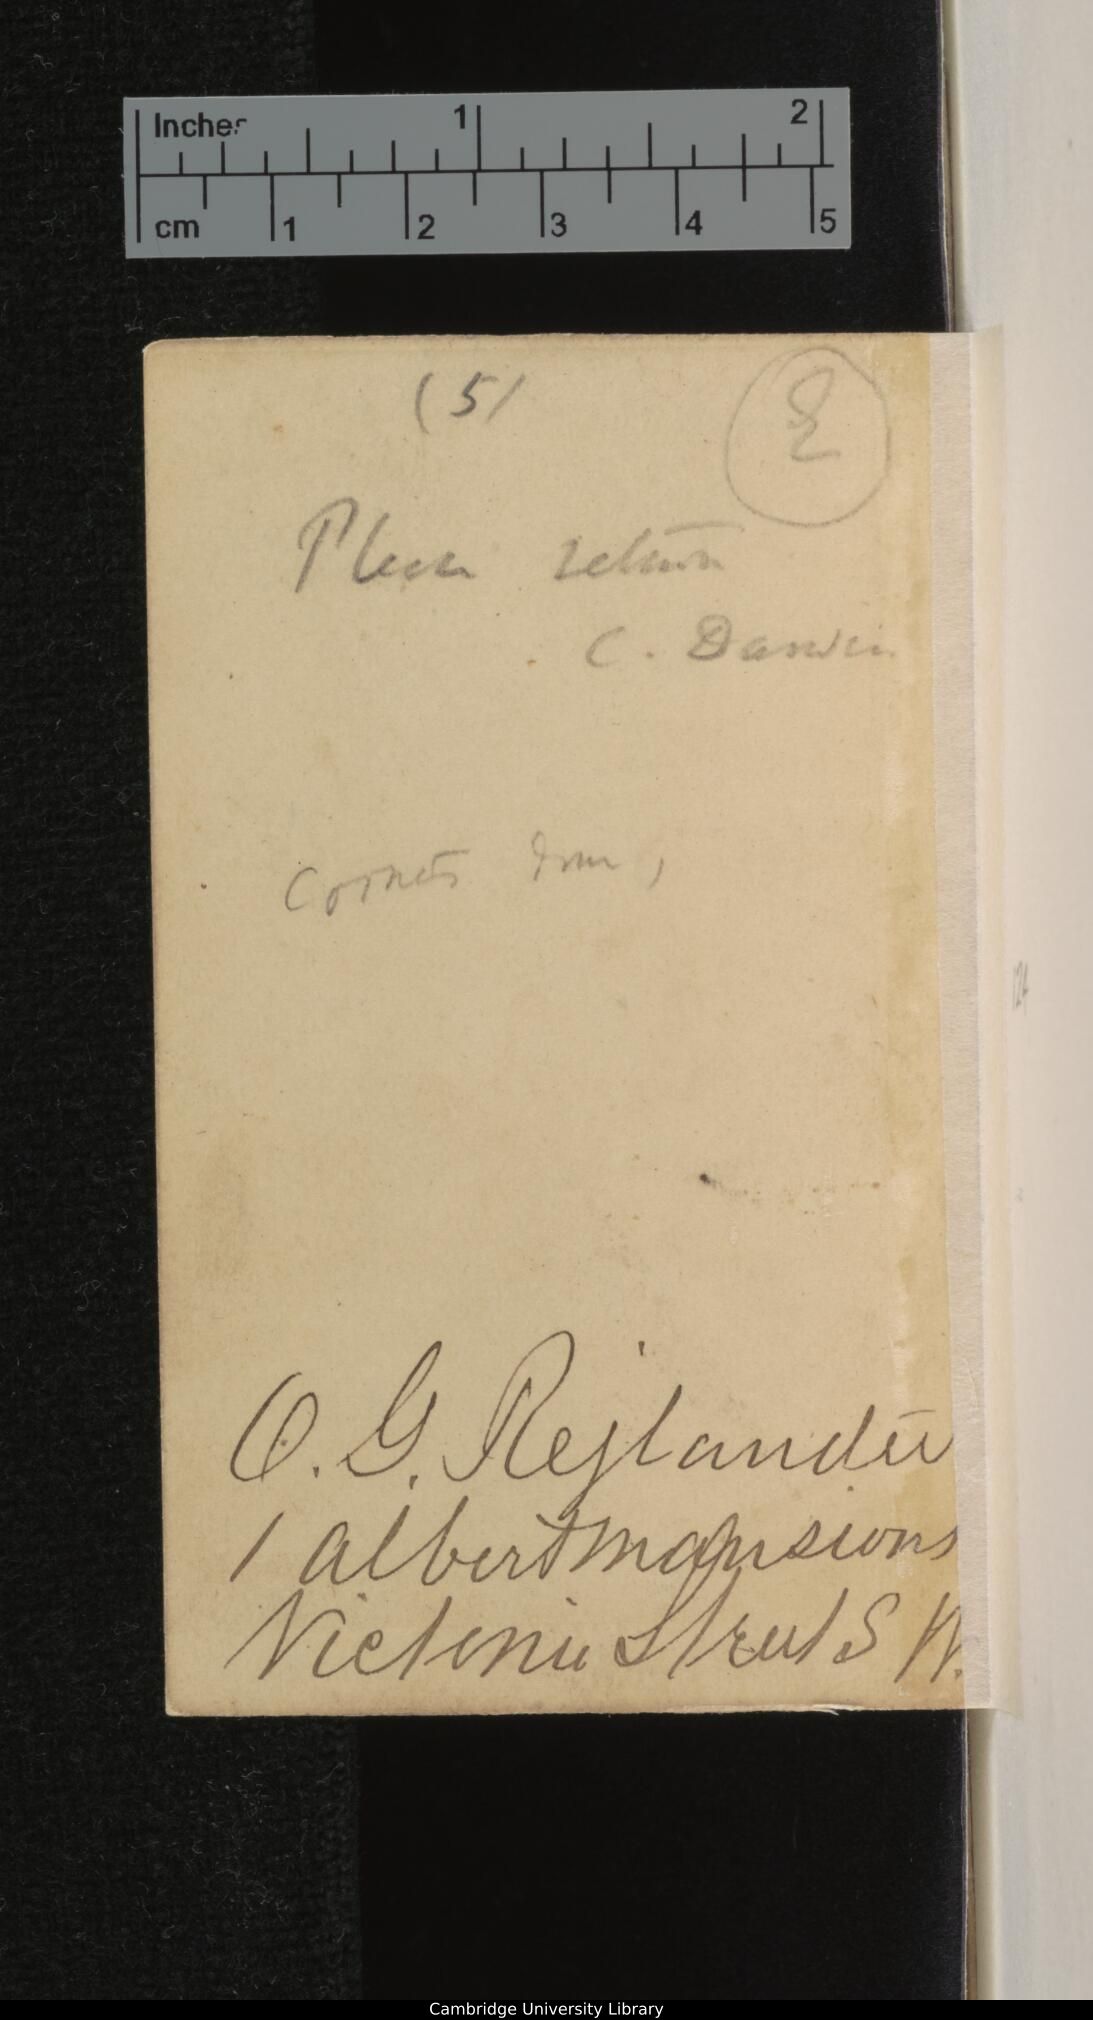 Inches 1 2
cm 1 2 3 4 5
(5)
E
Please return
C. Darwin
Corners
124
O. G. Rejlander
1 Albert Mansions
Victoria Street S W.
Cambridge University Library